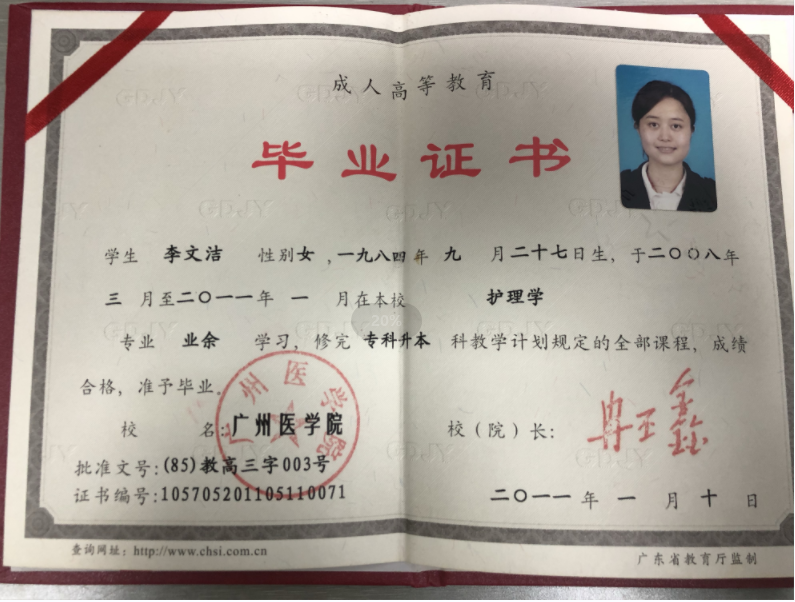 成人高等教育
毕业证书
学生 李文洁 性别女,一九八四年 九 月二十七日生，于二〇〇八年
三 月至二〇一一年 一 月在本校 护理学
专业 业余 学习，修完 专科升本 科教学计划规定的全部课程，成绩
合格，准予毕业.
校 名:广州医学院 校（院）长:
批准文号:(85)教高三字003号
证书编号:105705201105110071
二〇一一年 一 月 十 日
查询网址: http://www.chsi.com.cn
广东省教育厅监制
广州医学院
GDJY
GDJY
GDJY
GDJY
GDJY